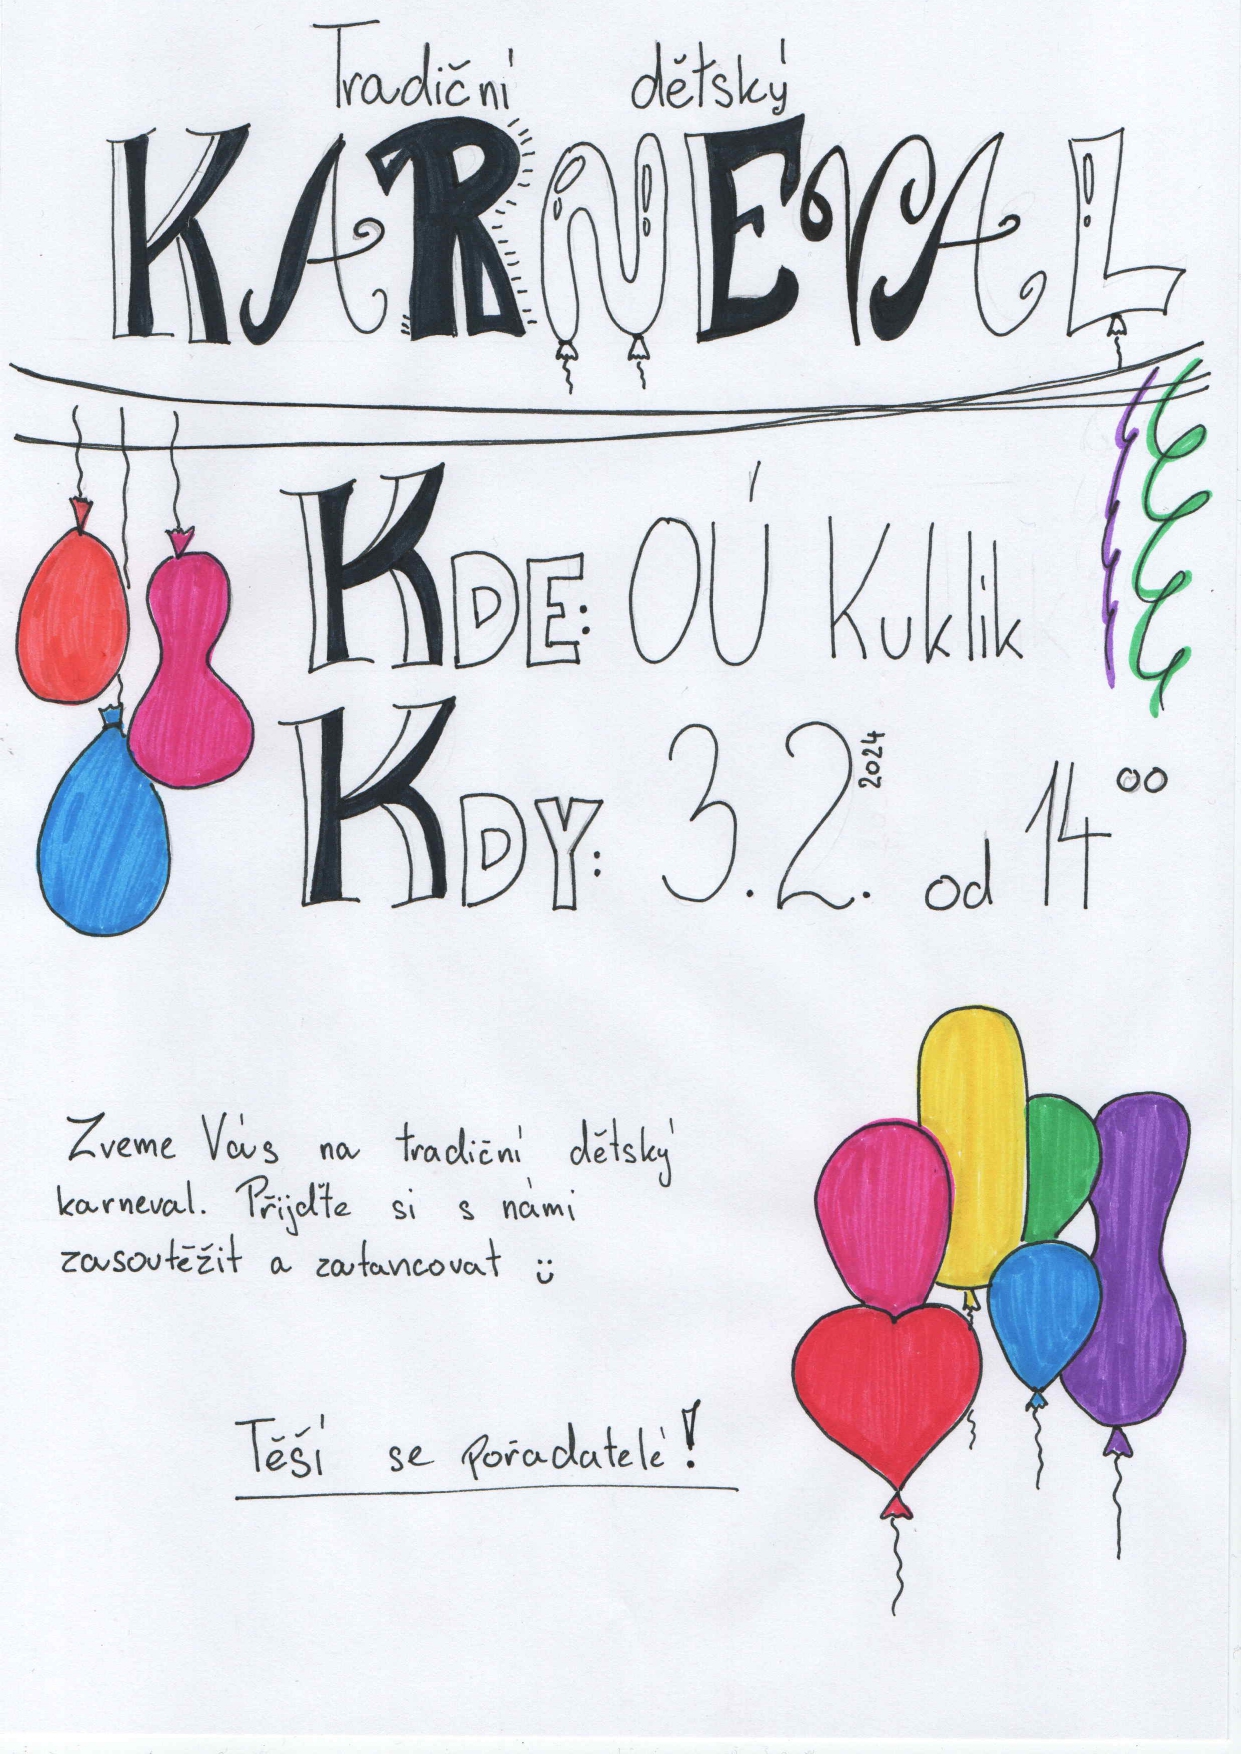 Tradiční dětský
KARNEVAL
KDE: OÚ Kuklik
KDY: 3.2. 2024 od 14⁰⁰
Zveme Vás na tradiční dětský
karneval. Přijďte si s námi
zasoutěžit a zatancovat ü
Těší se pořadatelé!